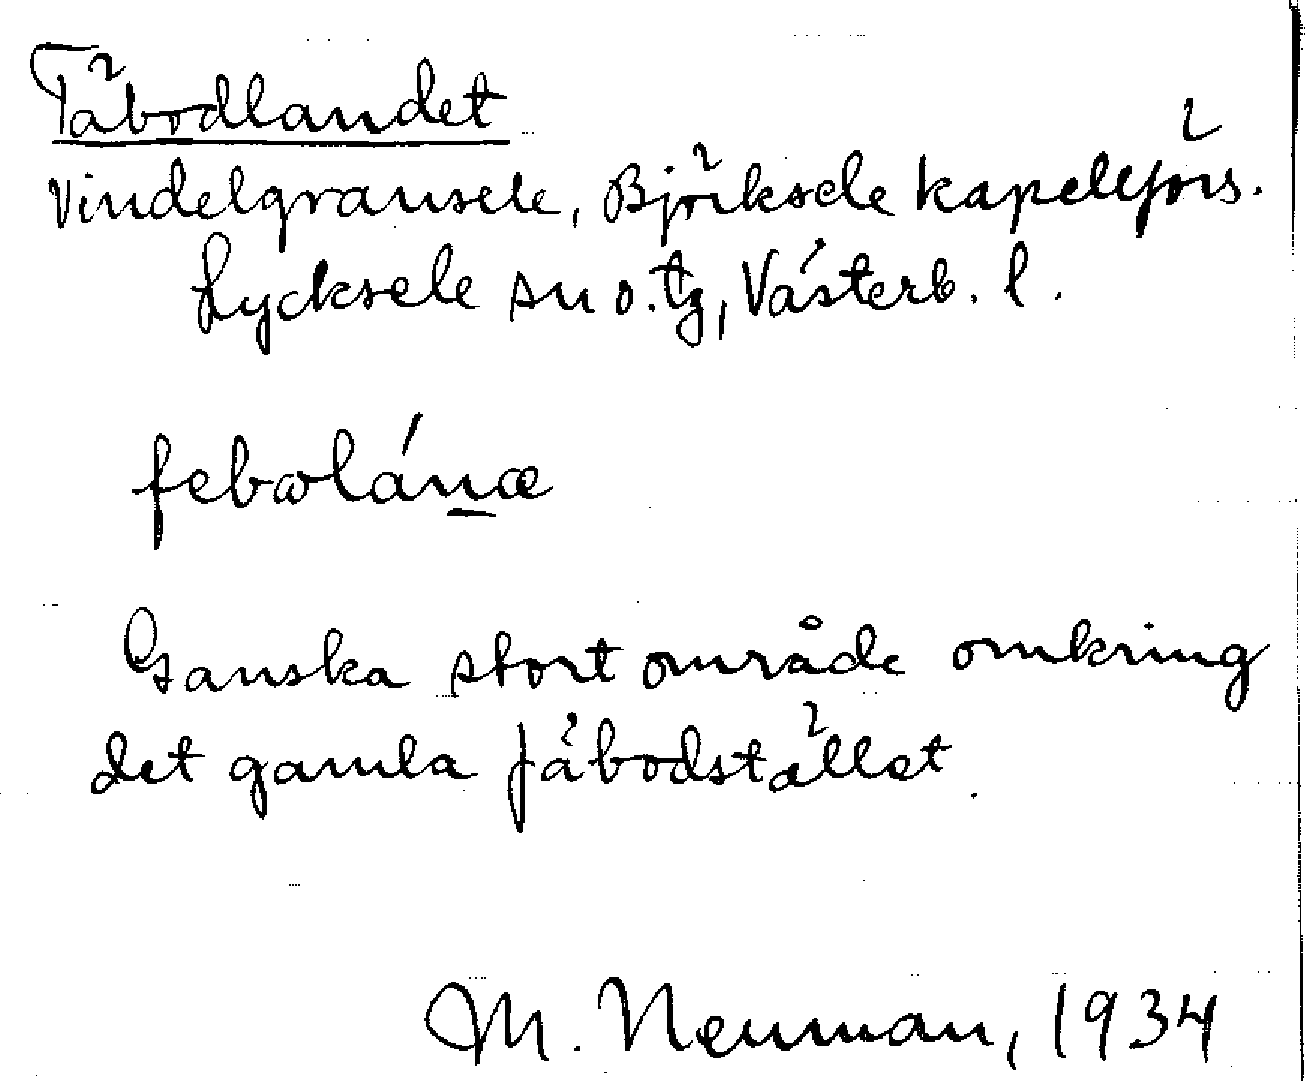 Fäbodlandet
Vindelgransele, Björksele kapellförs.
Lycksele sn o. tg, Västerb. l.
febωlánæ
Ganska stort område omkring
det gamla fäbodstället.
M. Neuman, 1934